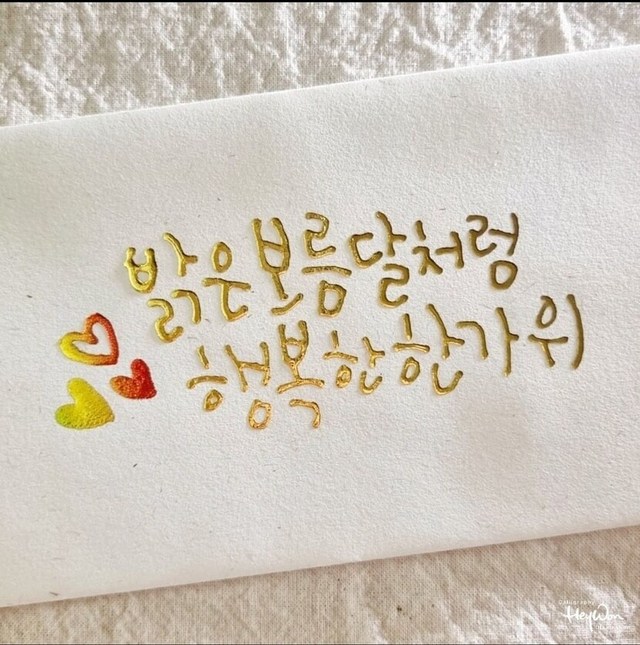 밝은보름달처럼
행복한한가위
Calligraphy
HeyWon